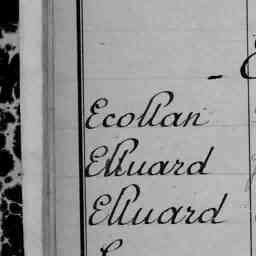 Ecollan
Elluard
Elluard